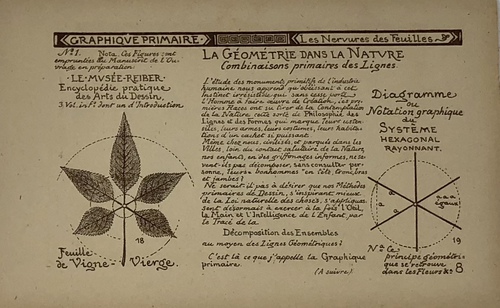 GRAPHIQVE PRIMAIRE
Les Nervures des Feuilles
Nº1. Nota. Ces Figures sont
empruntées au Manuscrit de l'Ou-
vrage en préparation
LE MVSÉE-REIBER
Encyclopédie pratique
des Arts du Dessin.
3 Vol. in fº dont un d'Introduction
LA GÉOMÉTRIE DANS LA NATVRE
Combinaisons primaires des Lignes
L'étude des monuments primitifs de l'industrie
humaine nous apprend qu'obéissant à cet
instinct irrésistible qui sans cesse porte
l'Homme à faire œuvre de Création, les pre-
mières Races ont su tirer de la Contemplation
de la Nature cette sorte de Philosophie des
Lignes et des Formes qui marque leurs usten-
siles, leurs armes, leurs costumes, leurs habita-
tions d'un cachet si puissant.
Même chez nous, civilisés, et parqués dans les
Villes, loin du contact salutaire de la Nature,
nos enfants, en des griffonages informes, ne sa-
vent-ils pas décomposer, sans consulter per-
sonne, leurs "bonhommes" en tête, tronc, bras
et jambes?
Ne serait-il pas à désirer que nos Méthodes
primaires de Dessin, s'inspirant mieux
de la Loi naturelle des choses, s'appliquas-
sent désormais à exercer à la fois l'Œil,
la Main et l'Intelligence de l'Enfant, par
le Tracé de la
Décomposition des Ensembles
au moyen des Lignes Géométriques?
C'est là ce que j'appelle la Graphique
primaire.
(A suivre)
Diagramme
ou
Notation graphique
du
SYSTÈME
HEXAGONAL
RAYONNANT.
a
a
a
a a a
égaux
19
Nota. Ce
principe géométrique
se retrouve
dans les Fleurs Nº 8
18
Feuille
de Vigne - Vierge.